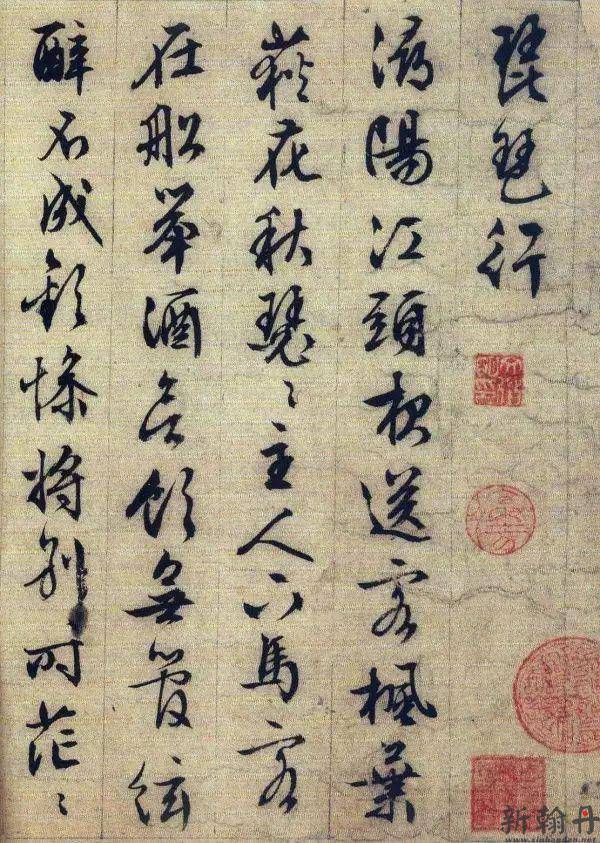 琵琶行
潯陽江頭夜送客楓葉
荻花秋瑟〻主人下馬客
在船舉酒欲飲無管絃
醉不成歡慘將別時茫〻
新翰丹